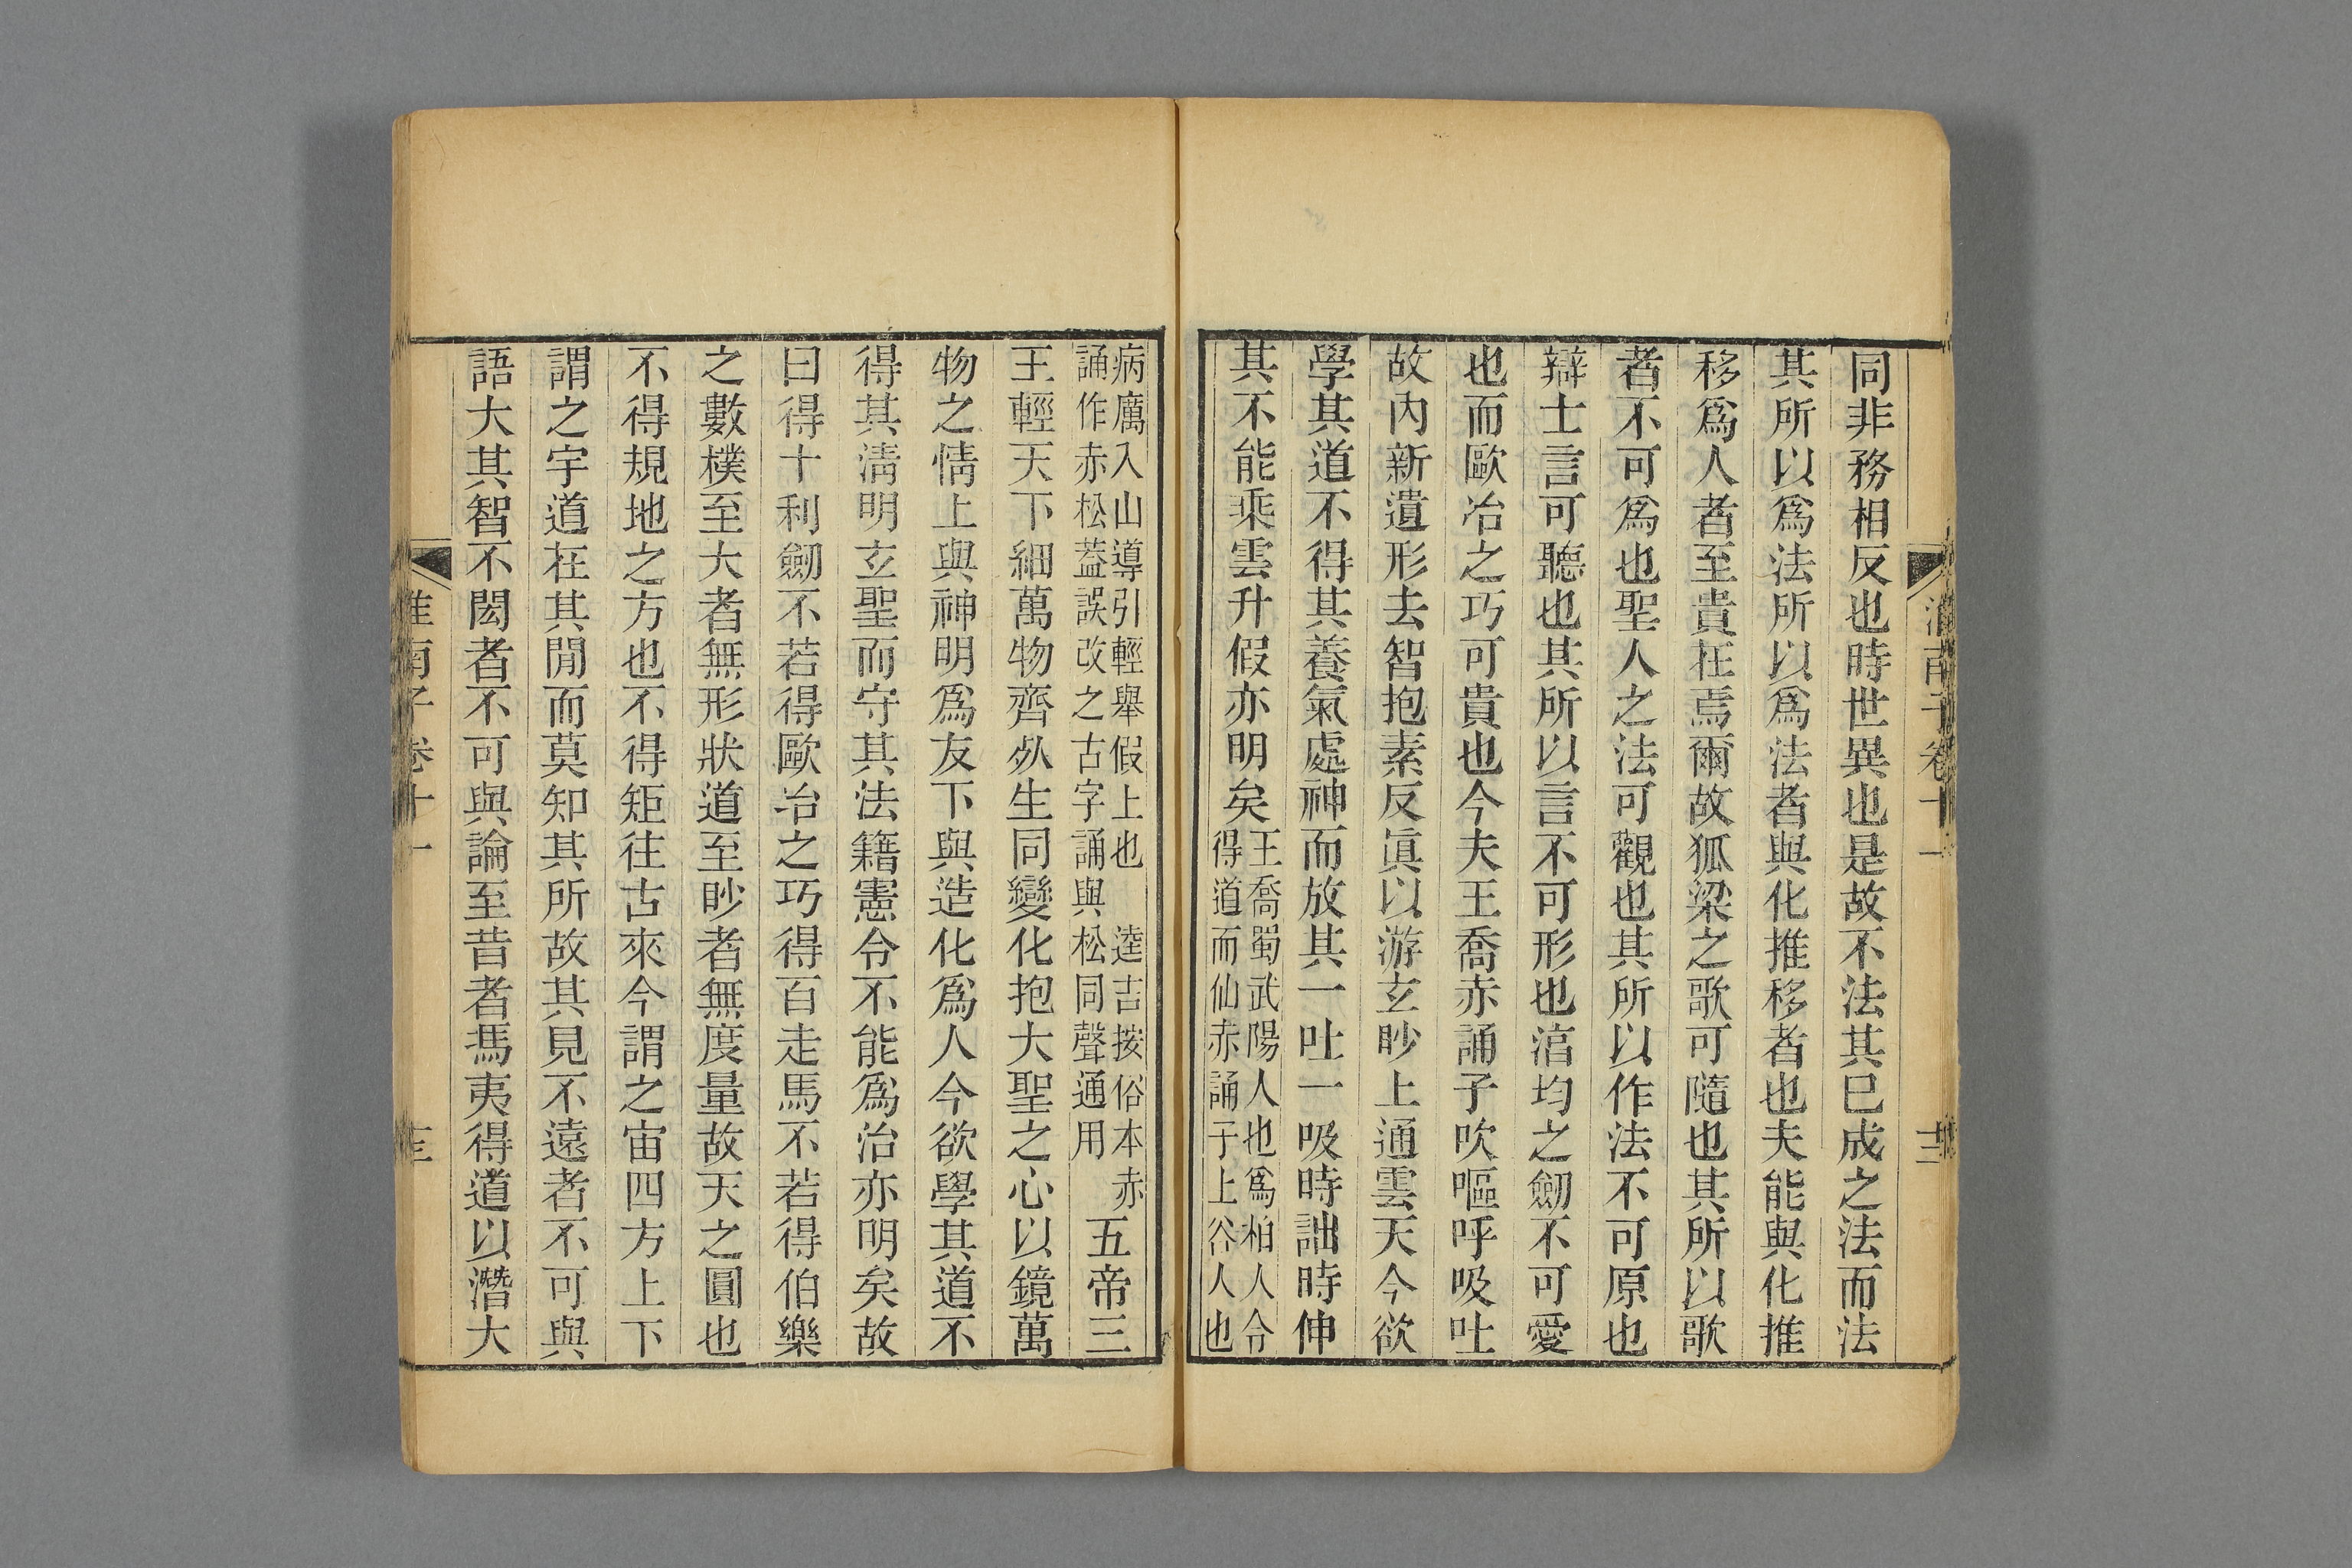 淮南子卷十一
十二
同非務相反也時世異也是故不法其巳成之法而法
其所以爲法所以爲法者與化推移者也夫能與化推
移爲人者至貴在焉爾故狐梁之歌可隨也其所以歌
者不可爲也聖人之法可觀也其所以作法不可原也
辯士言可聽也其所以言不可形也湻均之劒不可愛
也而歐冶之巧可貴也今夫王喬赤誦子吹嘔呼吸吐
故內新遺形去智抱素反眞以游玄眇上通雲天今欲
學其道不得其養氣處神而放其一吐一吸時詘時伸
其不能乘雲升假亦明矣王喬蜀武陽人也爲柏人令得道而仙赤誦子上谷人也
病厲入山導引輕舉假上也 逵吉按俗本赤誦作赤松葢誤改之古字誦與松同聲通用五帝三
王輕天下細萬物齊㱙生同變化抱大聖之心以鏡萬
物之情上與神明爲友下與造化爲人今欲學其道不
得其淸明玄聖而守其法籍憲令不能爲治亦明矣故
曰得十利劒不若得歐冶之巧得百走馬不若得伯樂
之數樸至大者無形狀道至眇者無度量故天之圓也
不得規地之方也不得矩往古來今謂之宙四方上下
謂之宇道在其閒而莫知其所故其見不遠者不可與
語大其智不閎者不可與論至昔者馮夷得道以潛大
淮南子卷十一